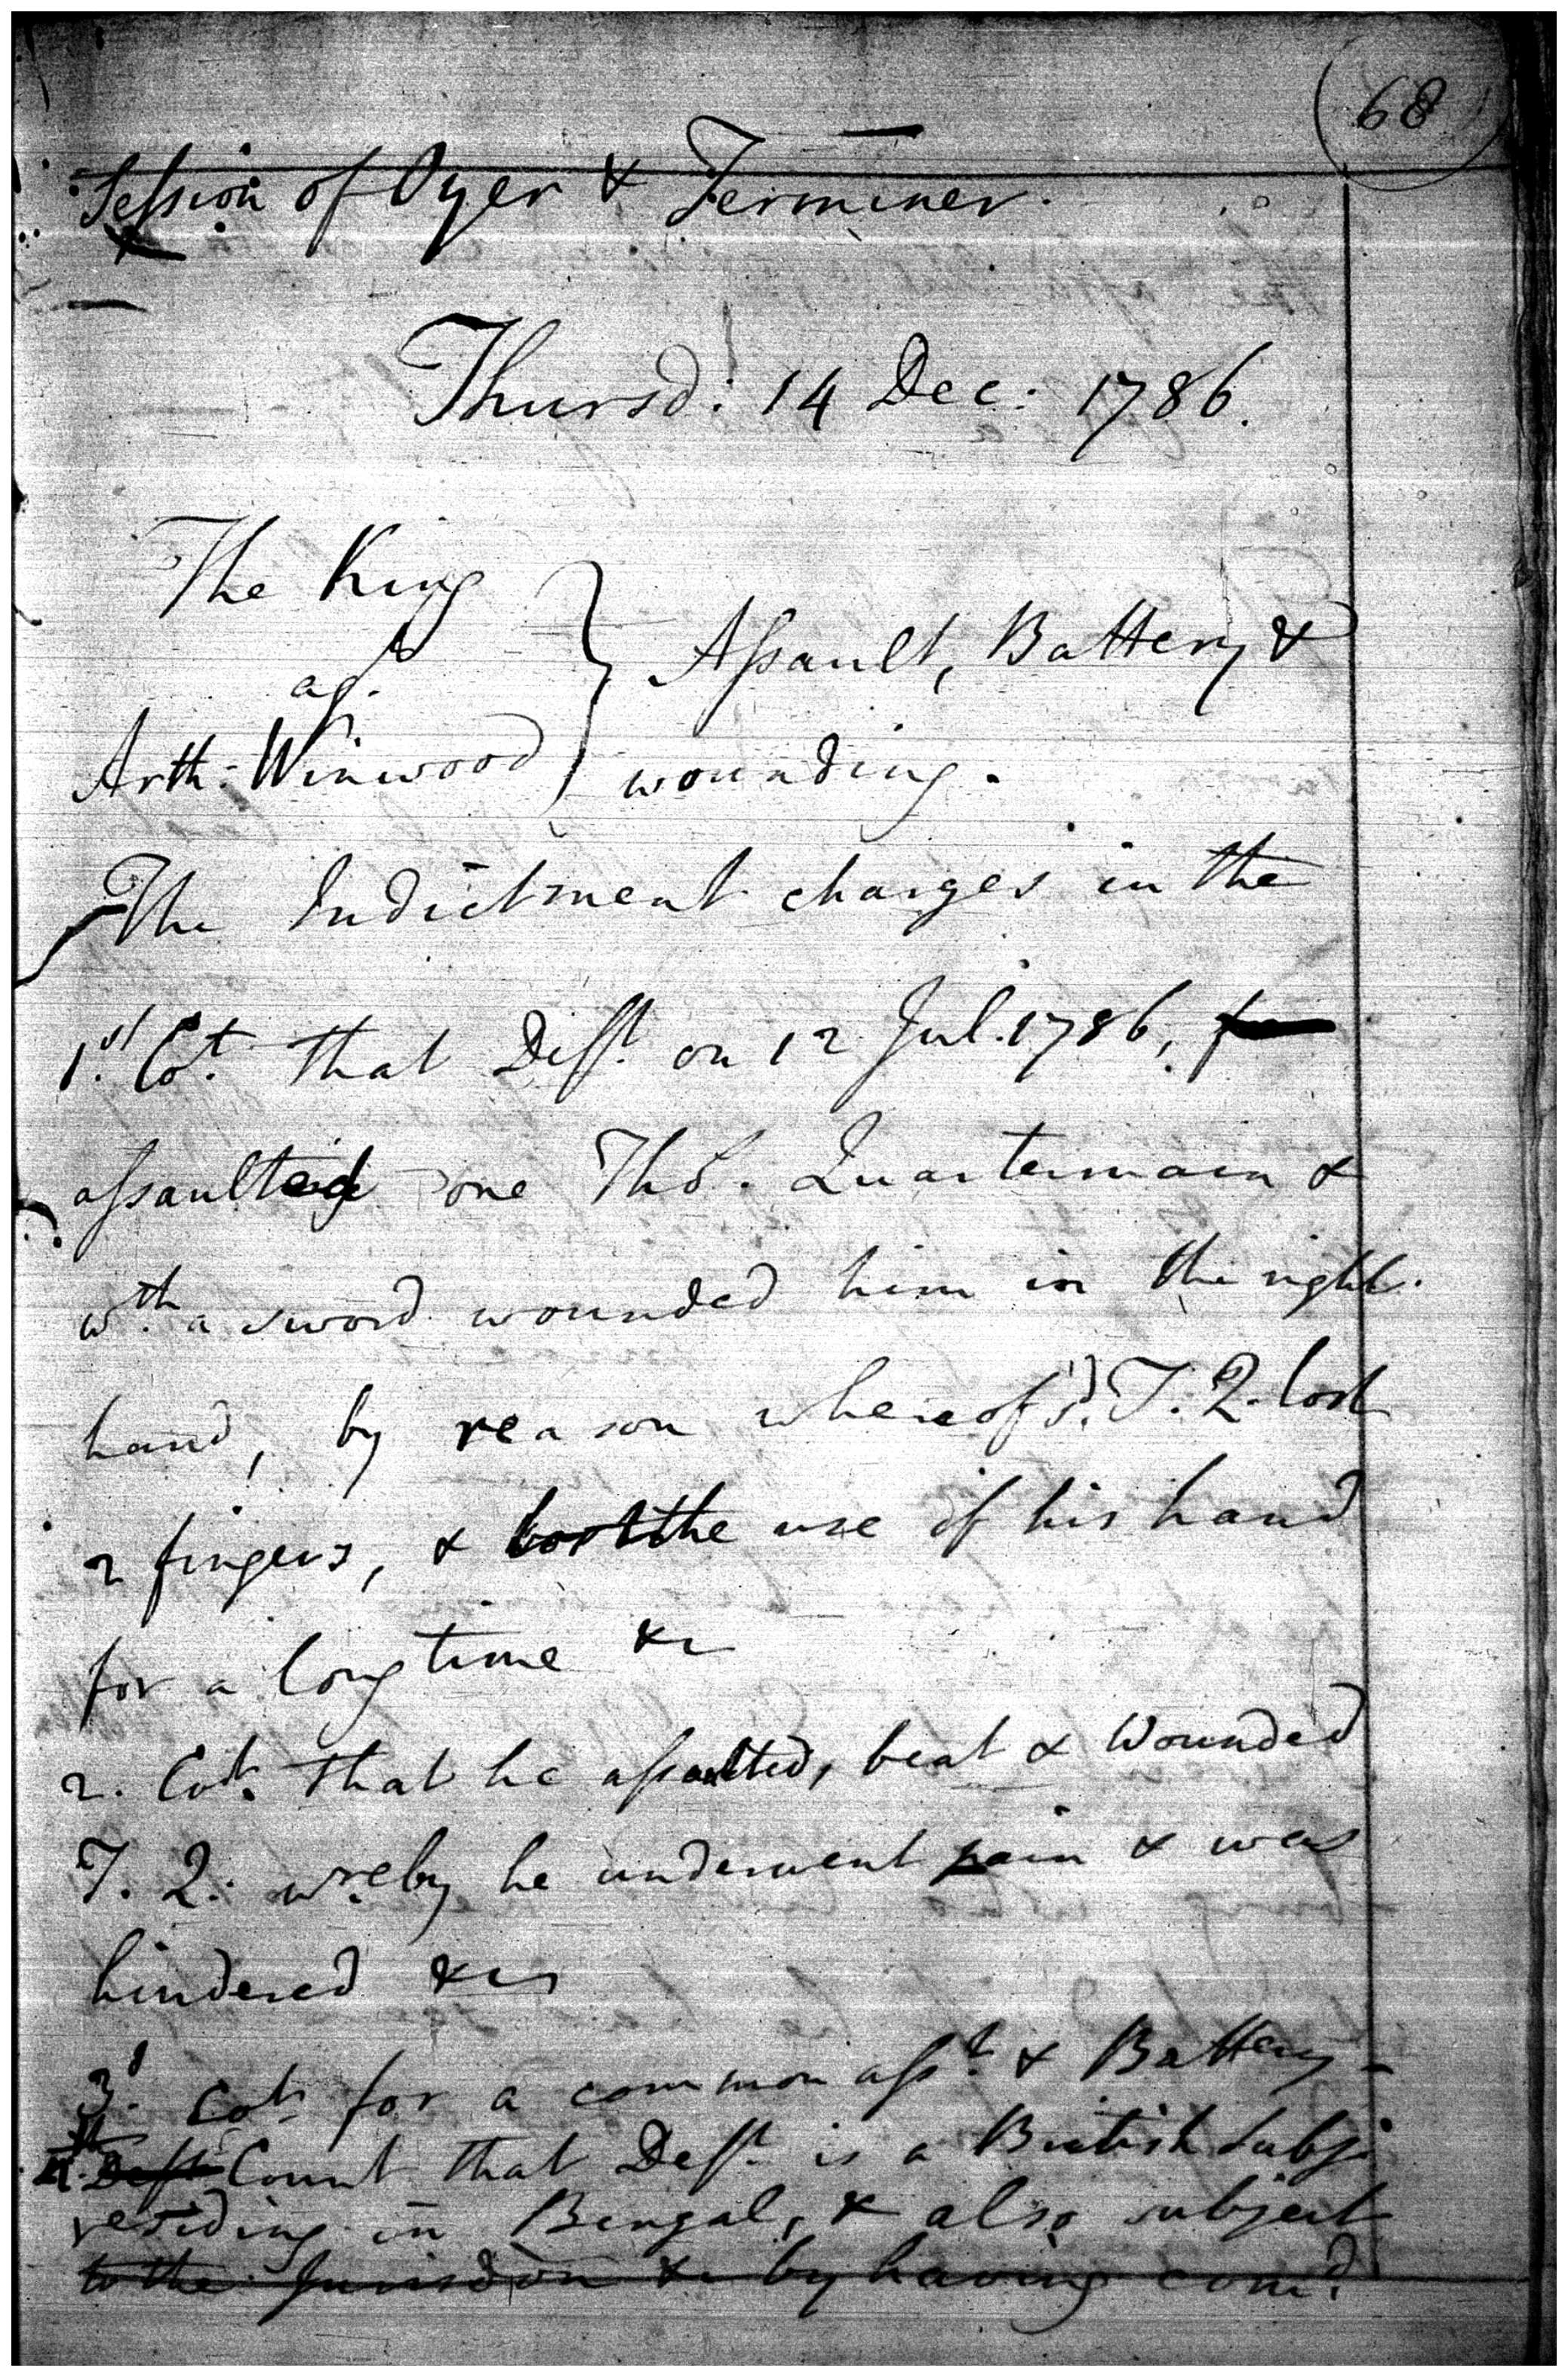 68
Session of Oyer & Terminer.
Thursd: 14 Dec: 1786.
The King
agt.
Arth: Winwood
Assault, Battery &
wounding.
The Indictment charges in the
1st. Cot. that Deft. on 12 Jul. 1786,
assaulted one Thos. Quartermain &
wth. a sword wounded him in the right
hand, by reason whereof sd. T. Q. lost
2 fingers, & lost the use of his hand
for a long time &c
2. Cot. that he assaulted, beat & wounded
T. Q: wreby he underwent pain & was
hindered &c
3d. Cot. for a common asst. & Battery -
4th. Deft Count that Deft. is a British Subj.
residing in Bengal, & also subject
to the Jurisdon &c by having comd.